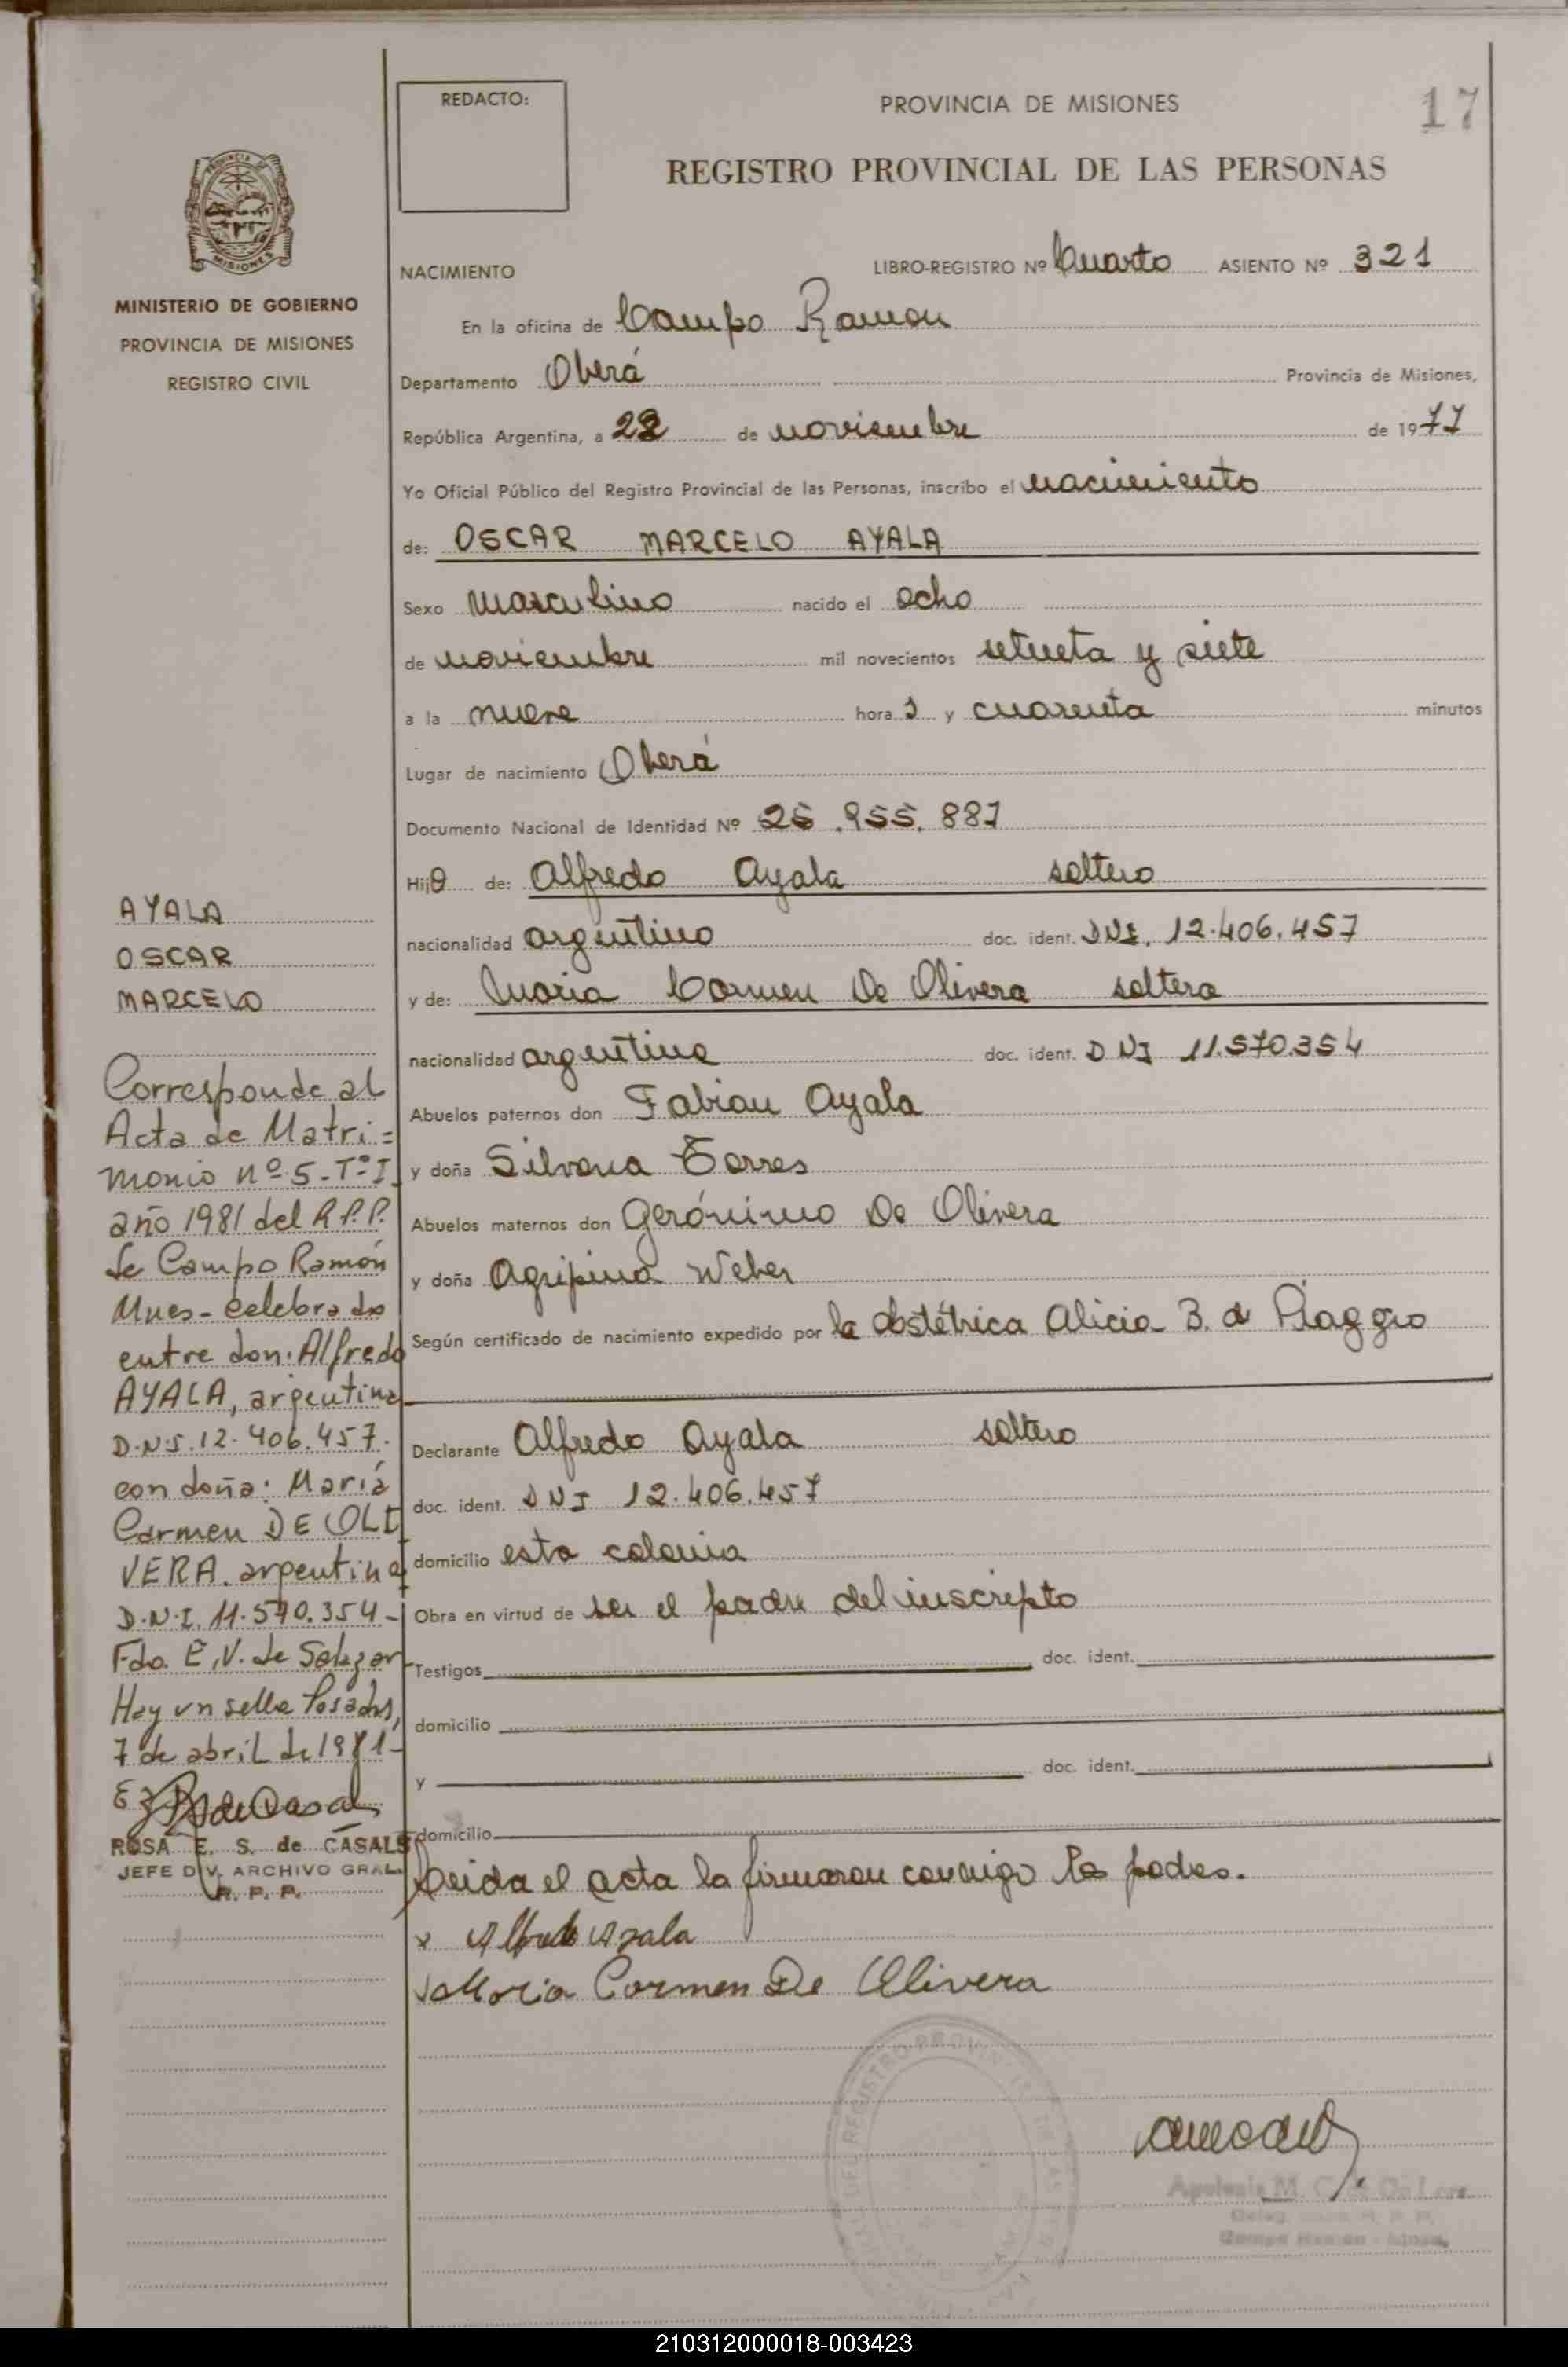 REDACTO:
PROVINCIA DE MISIONES
17
REGISTRO PROVINCIAL DE LAS PERSONAS
PROVINCIA DE
MISIONES
MINISTERIO DE GOBIERNO
PROVINCIA DE MISIONES
REGISTRO CIVIL
NACIMIENTO
LIBRO-REGISTRO Nº Cuarto ASIENTO Nº 321
En la oficina de Campo Ramon
Departamento Oberá Provincia de Misiones,
República Argentina, a de noviembre de 1977
Yo Oficial Público del Registro Provincial de las Personas, inscribo el nacimiento
de: OSCAR MARCELO AYALA
Sexo masculino nacido el ocho
de noviembre mil novecientos setenta y siete
a la nueve hora s y cuarenta minutos
Lugar de nacimiento Oberá
Documento Nacional de Identidad Nº 25.955.887
Hijo de: Alfredo Ayala soltero
nacionalidad argentino doc. ident. DNI. 12.406.457
y de: Maria Carmen De Olivera soltera
nacionalidad argentina doc. ident. DNI 11.570.354
Abuelos paternos don Fabian Ayala
y doña Silvana Torres
Abuelos maternos don Gerónimo De Olivera
y doña Agripina Weber
Según certificado de nacimiento expedido por la obstétrica Alicia B. de Piaggio
Declarante Alfredo Ayala soltero
doc. ident. DNI 12.406.457
domicilio esta colonia
Obra en virtud de ser el padre del inscripto
Testigos doc. ident.
domicilio
y doc. ident.
domicilio
Leida el acta la firmaron conmigo los padres.
x Alfredo Ayala
Maria Carmen De Olivera
AYALA
OSCAR
MARCELO
Corresponde al
Acta de Matri=
monio nº 5-Tº I
año 1981 del R.P.P.
de Campo Ramón
Mnes- Celebrado
entre don: Alfredo
AYALA, argentino
D.N.I. 12.406.457.
con doña: María
Carmen DE OLI
VERA. argentina
D.N.I. 11.570.354-
Fdo. E.V. de Salazar
Hay un sello Posadas,
7 de abril de 1981-
ROSA E. S. de CASALS
JEFE DIV. ARCHIVO GRAL.
R. P. P.
210312000018-003423